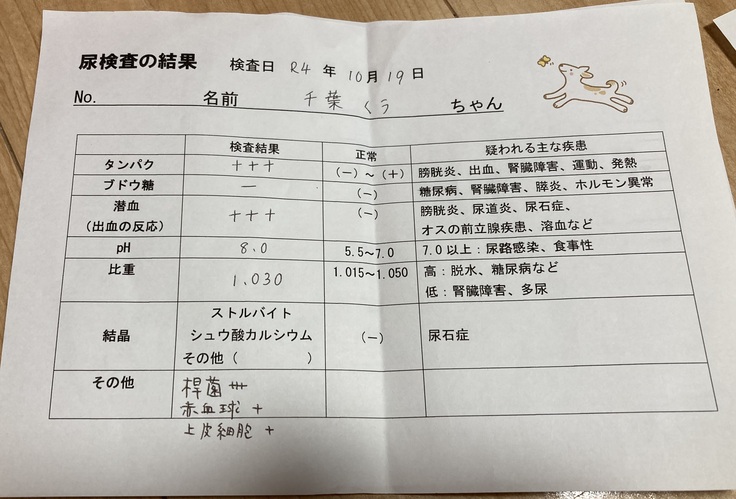 尿検査の結果 検査日 R4 年 10月 19日
No. 名前 千葉 くう ちゃん
検査結果 正常 疑われる主な疾患
タンパク +++ (－)～(＋) 膀胱炎、出血、腎臓障害、運動、発熱
ブドウ糖 － (－) 糖尿病、腎臓障害、膵炎、ホルモン異常
潜血 (出血の反応) +++ (－) 膀胱炎、尿道炎、尿石症、
オスの前立腺疾患、溶血など
pH 8.0 5.5～7.0 7.0以上：尿路感染、食事性
比重 1.030 1.015～1.050 高：脱水、糖尿病など
低：腎臓障害、多尿
結晶 ストルバイト (－) 尿石症
シュウ酸カルシウム
その他（ ）
その他 桿菌 +++
赤血球 +
上皮細胞 +